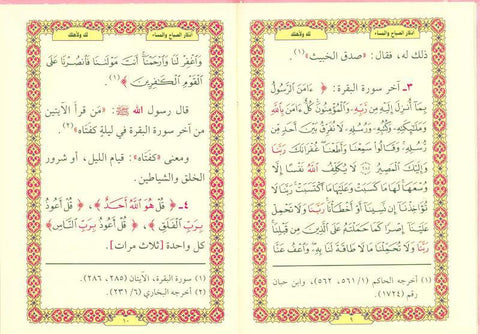 أذكار الصباح والمساء
لك ولأهلك
ذلك له، فقال: «صدق الخبيث»(١).
٣- آخر سورة البقرة: ﴿ءَامَنَ ٱلرَّسُولُ
بِمَآ أُنزِلَ إِلَيْهِ مِن رَّبِّهِۦ وَٱلْمُؤْمِنُونَۚ كُلٌّ ءَامَنَ بِٱللَّهِ
وَمَلَٰٓئِكَتِهِۦ وَكُتُبِهِۦ وَرُسُلِهِۦ لَا نُفَرِّقُ بَيْنَ أَحَدٍ مِّن
رُّسُلِهِۦۚ وَقَالُوا۟ سَمِعْنَا وَأَطَعْنَاۖ غُفْرَانَكَ رَبَّنَا
وَإِلَيْكَ ٱلْمَصِيرُ ۝٢٨٥ لَا يُكَلِّفُ ٱللَّهُ نَفْسًا إِلَّا
وُسْعَهَاۚ لَهَا مَا كَسَبَتْ وَعَلَيْهَا مَا ٱكْتَسَبَتْۗ رَبَّنَا لَا
تُؤَاخِذْنَآ إِن نَّسِينَآ أَوْ أَخْطَأْنَاۚ رَبَّنَا وَلَا تَحْمِلْ
عَلَيْنَآ إِصْرًا كَمَا حَمَلْتَهُۥ عَلَى ٱلَّذِينَ مِن قَبْلِنَاۚ
رَبَّنَا وَلَا تُحَمِّلْنَا مَا لَا طَاقَةَ لَنَا بِهِۦۖ وَٱعْفُ عَنَّا
(١) أخرجه الحاكم (٥٦١/١، ٥٦٢)، وابن حبان
رقم (١٧٢٤).
٩
أذكار الصباح والمساء
لك ولأهلك
وَٱغْفِرْ لَنَا وَٱرْحَمْنَآۚ أَنتَ مَوْلَىٰنَا فَٱنصُرْنَا عَلَى
ٱلْقَوْمِ ٱلْكَٰفِرِينَ﴾(١).
قال رسول الله ﷺ: «مَن قرأ الآيتين
من آخر سورة البقرة في ليلةٍ كفتَاه»(٢).
ومعنى «كفتَاه»: قيام الليل، أو شرور
الخلق والشياطين.
٤- ﴿قُلْ هُوَ ٱللَّهُ أَحَدٌ﴾، ﴿قُلْ أَعُوذُ
بِرَبِّ ٱلْفَلَقِ﴾، ﴿قُلْ أَعُوذُ بِرَبِّ ٱلنَّاسِ﴾
كل واحدة [ثلاث مرات]
(١) سورة البقرة، الآيتان (٢٨٥، ٢٨٦).
(٢) أخرجه البخاري (٢٣١/٦).
١٠